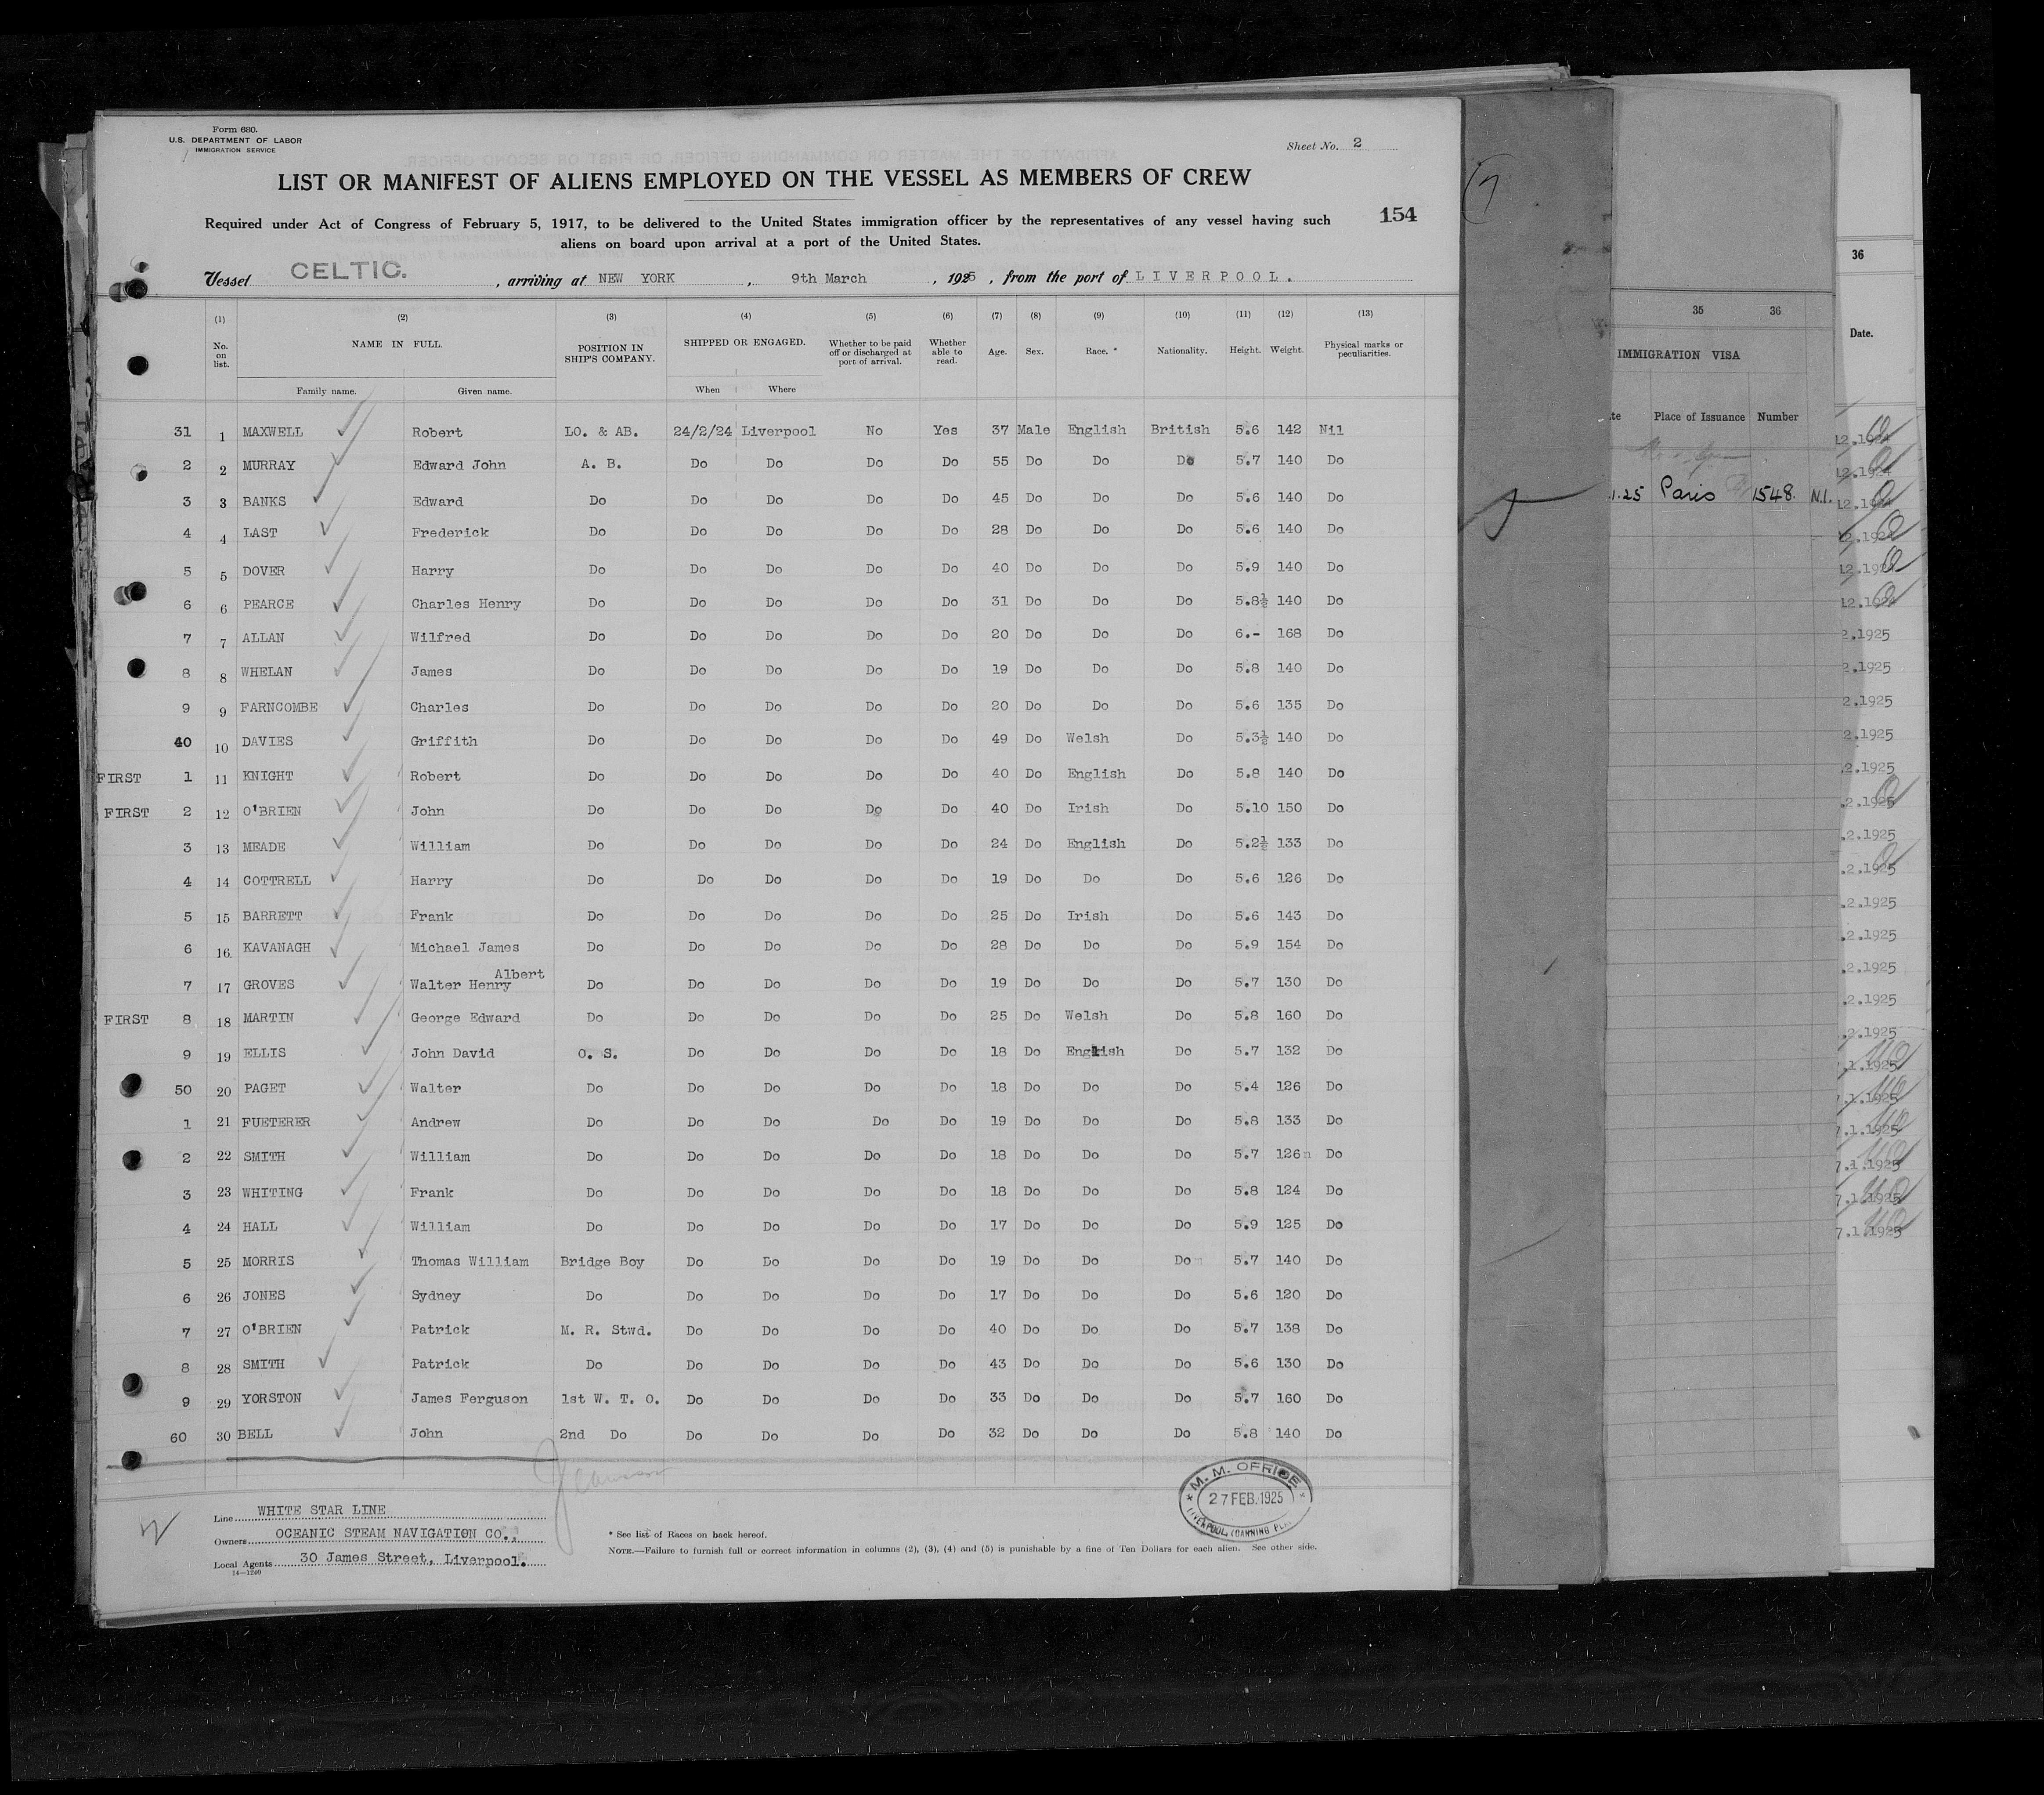 Form 680.
U.S. DEPARTMENT OF LABOR
IMMIGRATION SERVICE
Sheet No. 2
LIST OR MANIFEST OF ALIENS EMPLOYED ON THE VESSEL AS MEMBERS OF CREW
154
Required under Act of Congress of February 5, 1917, to be delivered to the United States immigration officer by the representatives of any vessel having such
aliens on board upon arrival at a port of the United States.
Vessel CELTIC. , arriving at NEW YORK , 9th March , 1925 , from the port of LIVERPOOL.
(1) (2) (3) (4) (5) (6) (7) (8) (9) (10) (11) (12) (13)
No. on list. NAME IN FULL. POSITION IN SHIP'S COMPANY. SHIPPED OR ENGAGED. Whether to be paid off or discharged at port of arrival. Whether able to read. Age. Sex. Race. * Nationality. Height. Weight. Physical marks or peculiarities.
Family name. Given name. When Where
31 1 MAXWELL Robert LO. & AB. 24/2/24 Liverpool No Yes 37 Male English British 5.6 142 Nil
2 2 MURRAY Edward John A. B. Do Do Do Do 55 Do Do Do 5.7 140 Do
3 3 BANKS Edward Do Do Do Do Do 45 Do Do Do 5.6 140 Do
4 4 LAST Frederick Do Do Do Do Do 28 Do Do Do 5.6 140 Do
5 5 DOVER Harry Do Do Do Do Do 40 Do Do Do 5.9 140 Do
6 6 PEARCE Charles Henry Do Do Do Do Do 31 Do Do Do 5.8½ 140 Do
7 7 ALLAN Wilfred Do Do Do Do Do 20 Do Do Do 6.- 168 Do
8 8 WHELAN James Do Do Do Do Do 19 Do Do Do 5.8 140 Do
9 9 FARNCOMBE Charles Do Do Do Do Do 20 Do Do Do 5.6 135 Do
40 10 DAVIES Griffith Do Do Do Do Do 49 Do Welsh Do 5.3½ 140 Do
FIRST 1 11 KNIGHT Robert Do Do Do Do Do 40 Do English Do 5.8 140 Do
FIRST 2 12 O'BRIEN John Do Do Do Do Do 40 Do Irish Do 5.10 150 Do
3 13 MEADE William Do Do Do Do Do 24 Do English Do 5.2½ 133 Do
4 14 COTTRELL Harry Do Do Do Do Do 19 Do Do Do 5.6 126 Do
5 15 BARRETT Frank Do Do Do Do Do 25 Do Irish Do 5.6 143 Do
6 16 KAVANAGH Michael James Do Do Do Do Do 28 Do Do Do 5.9 154 Do
Albert
7 17 GROVES Walter Henry Do Do Do Do Do 19 Do Do Do 5.7 130 Do
FIRST 8 18 MARTIN George Edward Do Do Do Do Do 25 Do Welsh Do 5.8 160 Do
9 19 ELLIS John David O. S. Do Do Do Do 18 Do English Do 5.7 132 Do
50 20 PAGET Walter Do Do Do Do Do 18 Do Do Do 5.4 126 Do
1 21 FUETERER Andrew Do Do Do Do Do 19 Do Do Do 5.8 133 Do
2 22 SMITH William Do Do Do Do Do 18 Do Do Do 5.7 126 Do
3 23 WHITING Frank Do Do Do Do Do 18 Do Do Do 5.8 124 Do
4 24 HALL William Do Do Do Do Do 17 Do Do Do 5.9 125 Do
5 25 MORRIS Thomas William Bridge Boy Do Do Do Do 19 Do Do Do 5.7 140 Do
6 26 JONES Sydney Do Do Do Do Do 17 Do Do Do 5.6 120 Do
7 27 O'BRIEN Patrick M. R. Stwd. Do Do Do Do 40 Do Do Do 5.7 138 Do
8 28 SMITH Patrick Do Do Do Do Do 43 Do Do Do 5.6 130 Do
9 29 YORSTON James Ferguson 1st W. T. O. Do Do Do Do 33 Do Do Do 5.7 160 Do
60 30 BELL John 2nd Do Do Do Do Do 32 Do Do Do 5.8 140 Do
Line WHITE STAR LINE
Owners OCEANIC STEAM NAVIGATION CO.,
Local Agents 30 James Street, Liverpool.
14—1240
* See list of Races on back hereof.
NOTE.—Failure to furnish full or correct information in columns (2), (3), (4) and (5) is punishable by a fine of Ten Dollars for each alien. See other side.
M. M. OFFICE
27 FEB. 1925
LIVERPOOL, (CANNING
35 36
IMMIGRATION VISA
Place of Issuance Number
1.25 Paris 1548. N.I.
36
Date.
12.1924
12.1924
12.1924
12.1924
12.1924
12.1924
2.1925
2.1925
2.1925
2.1925
.2.1925
.2.1925
.2.1925
.2.1925
.2.1925
.2.1925
.2.1925
.2.1925
.2.1925
7.1.1925
7.1.1925
7.1.1925
7.1.1925
7.1.1925
7.1.1925